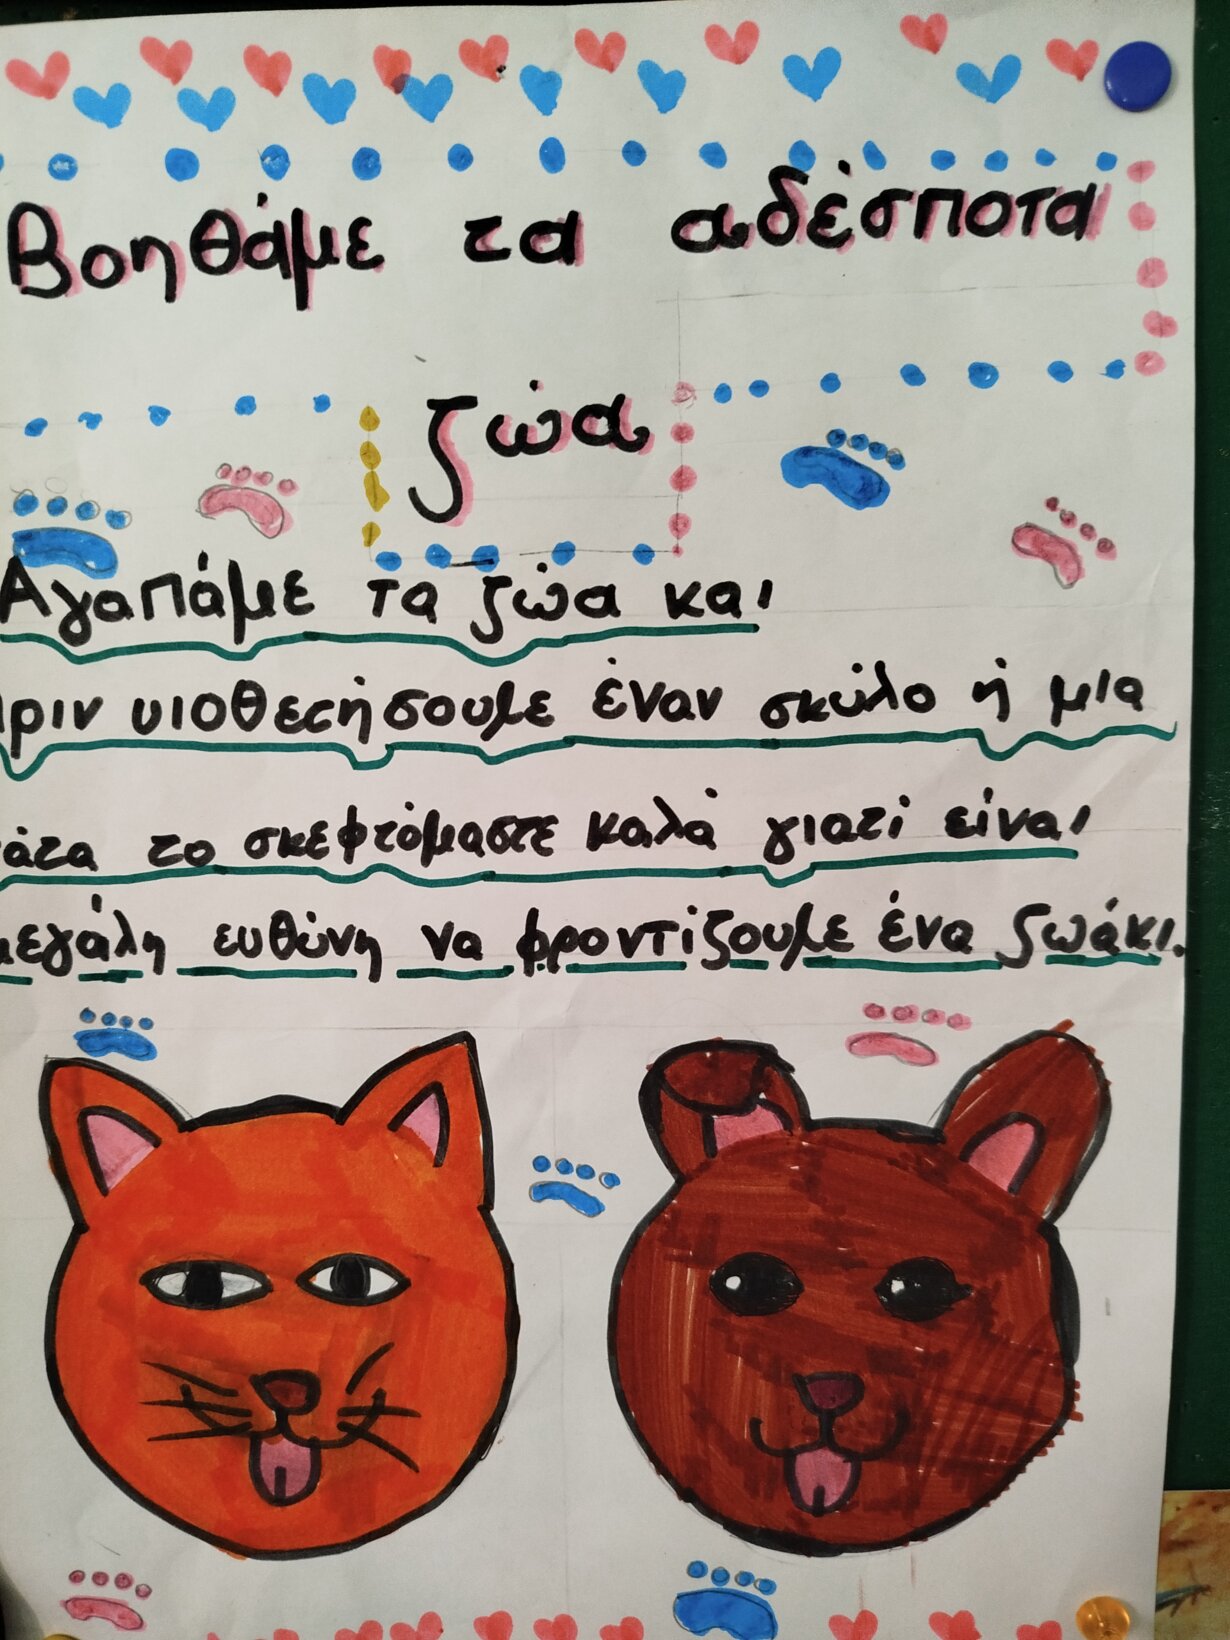 Βοηθάμε τα αδέσποτα
ζώα
Αγαπάμε τα ζώα και
πριν υιοθεςήσουμε έναν σκύλο ή μια
γάτα το σκεφτόμαστε καλά γιατί είναι
μεγάλη ευθύνη να φροντίζουμε ένα ζωάκι.